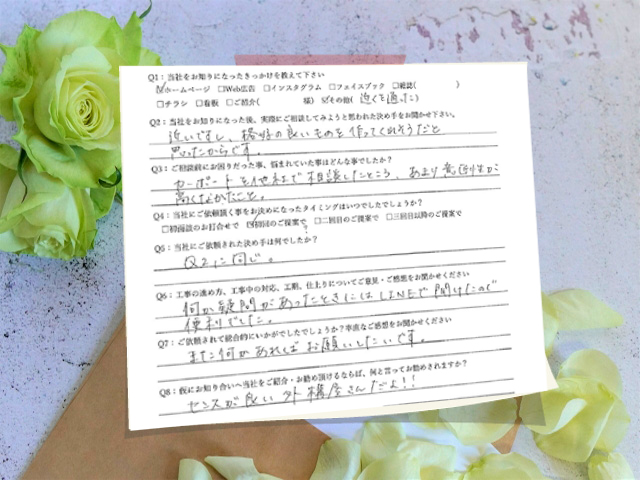 Q1：当社をお知りになったきっかけを教えて下さい
☑ホームページ □Web広告 □インスタグラム □フェイスブック □雑誌( )
□チラシ □看板 □ご紹介( 様) ☑その他( 近くを通った )
Q2：当社をお知りになった後、実際にご相談してみようと思われた決め手をお聞かせ下さい。
近いですし、格好の良いものを作ってくれそうだと
思ったからです
Q3：ご相談前にお困りだった事、悩まれていた事はどんな事でしたか？
カーポートを他社で相談したところ、あまり意匠性が
高くなかたこと。
Q4：当社にご依頼頂く事をお決めになったタイミングはいつでしたでしょうか？
□初面談のお打合せで ☑初回のご提案で □二回目のご提案で □三回目以降のご提案で
Q5：当社にご依頼された決め手は何でしたか？
Q2に同じ。
Q6：工事の進め方、工事中の対応、工期、仕上りについてご意見・ご感想をお聞かせください
何か疑問があったときにはLINEで聞けたので
便利でした。
Q7：ご依頼されて総合的にいかがでしたでしょうか？率直なご感想をお聞かせください
また何かあればお願いしたいです。
Q8：仮にお知り合いへ当社をご紹介・お勧め頂けるならば、何と言ってお勧めされますか？
センスが良い外構屋さんだよ！！